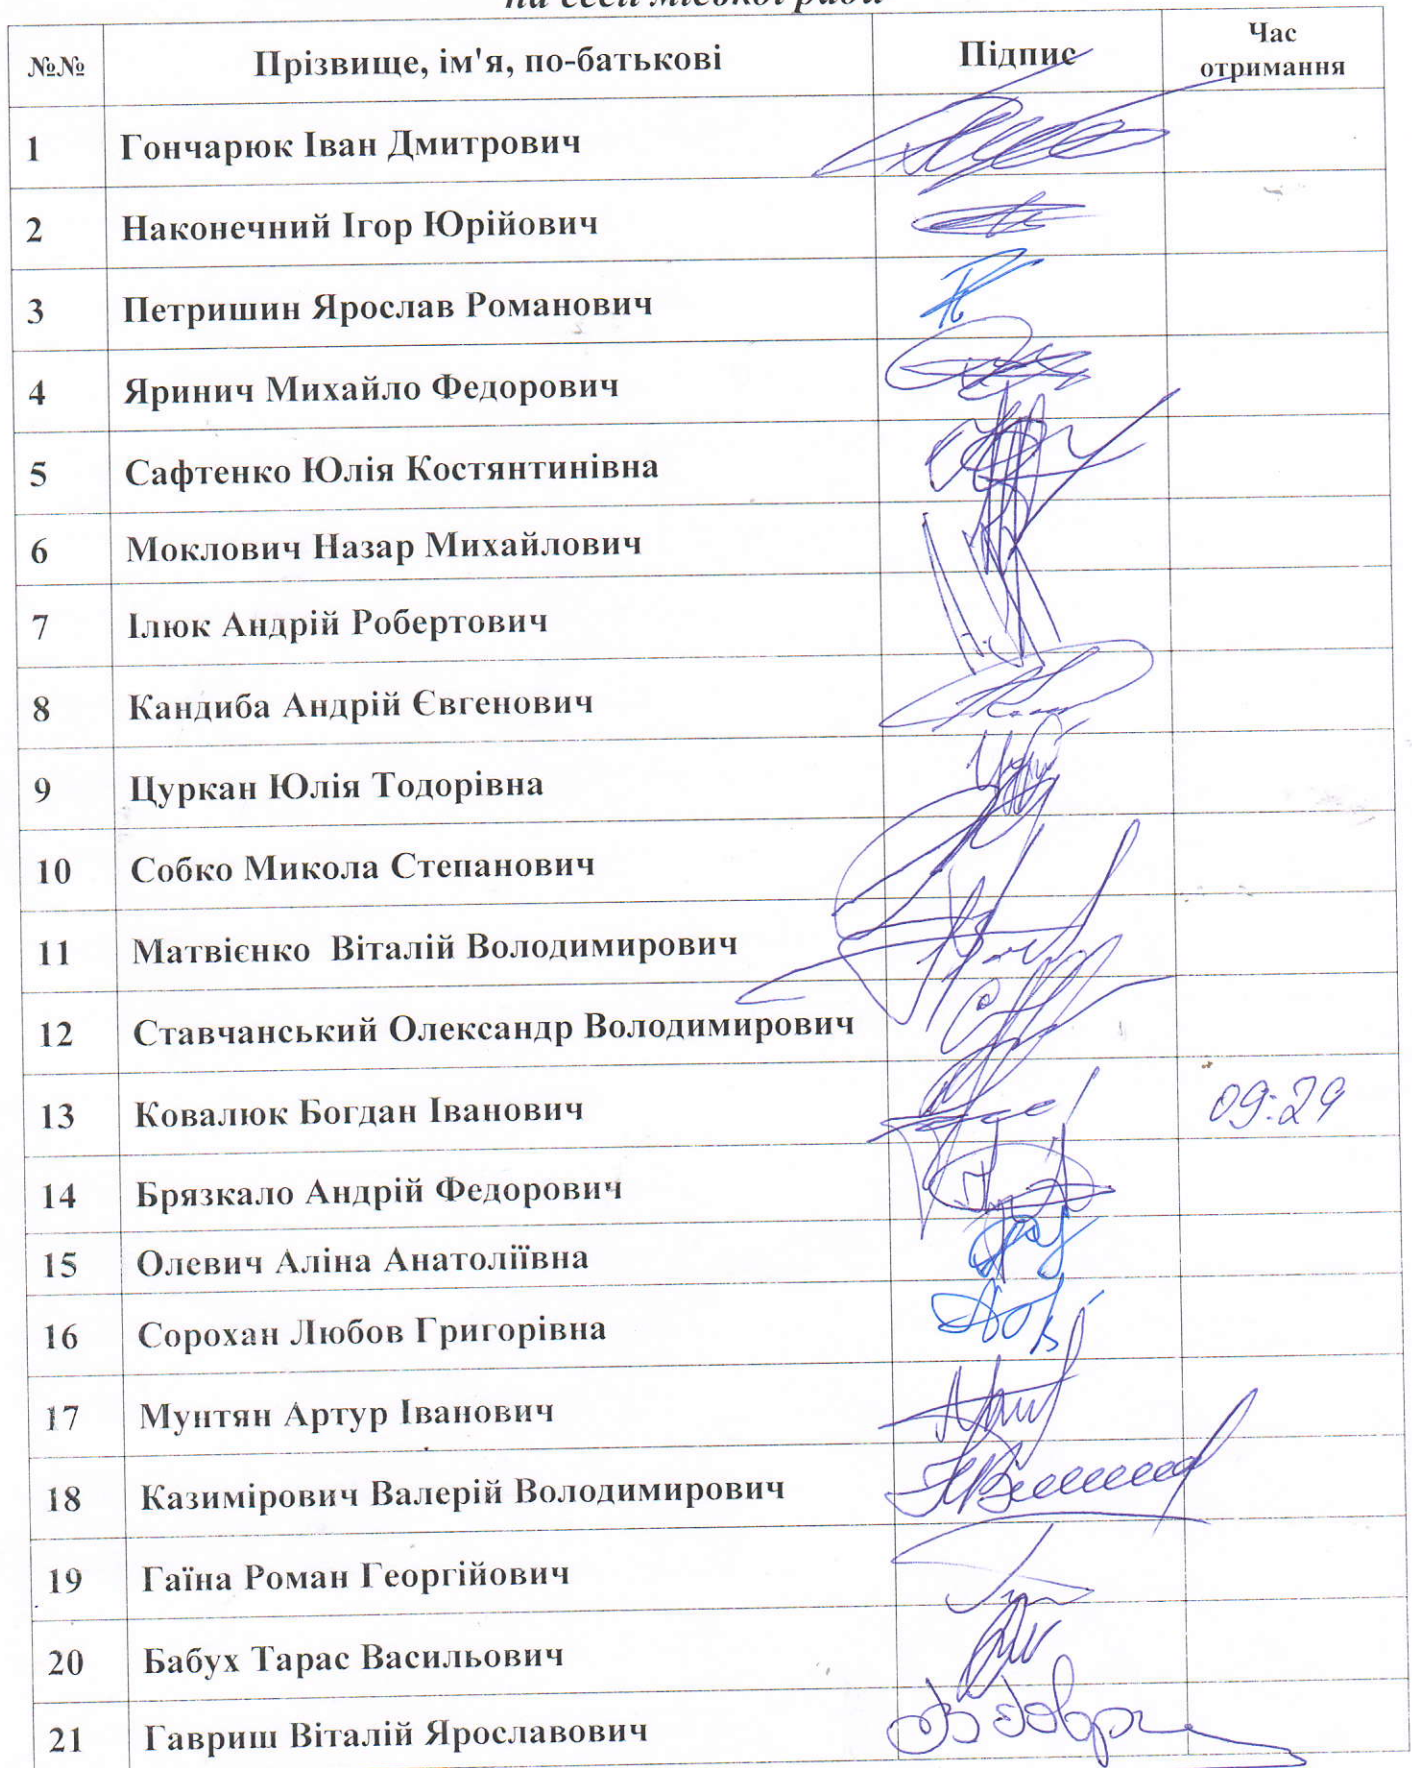 на сесії міської ради
№№ Прізвище, ім'я, по-батькові Підпис Час отримання
1 Гончарюк Іван Дмитрович
2 Наконечний Ігор Юрійович
3 Петришин Ярослав Романович
4 Яринич Михайло Федорович
5 Сафтенко Юлія Костянтинівна
6 Моклович Назар Михайлович
7 Ілюк Андрій Робертович
8 Кандиба Андрій Євгенович
9 Цуркан Юлія Тодорівна
10 Собко Микола Степанович
11 Матвієнко Віталій Володимирович
12 Ставчанський Олександр Володимирович
13 Ковалюк Богдан Іванович 09:29
14 Брязкало Андрій Федорович
15 Олевич Аліна Анатоліївна
16 Сорохан Любов Григорівна
17 Мунтян Артур Іванович
18 Казимірович Валерій Володимирович
19 Гаїна Роман Георгійович
20 Бабух Тарас Васильович
21 Гавриш Віталій Ярославович